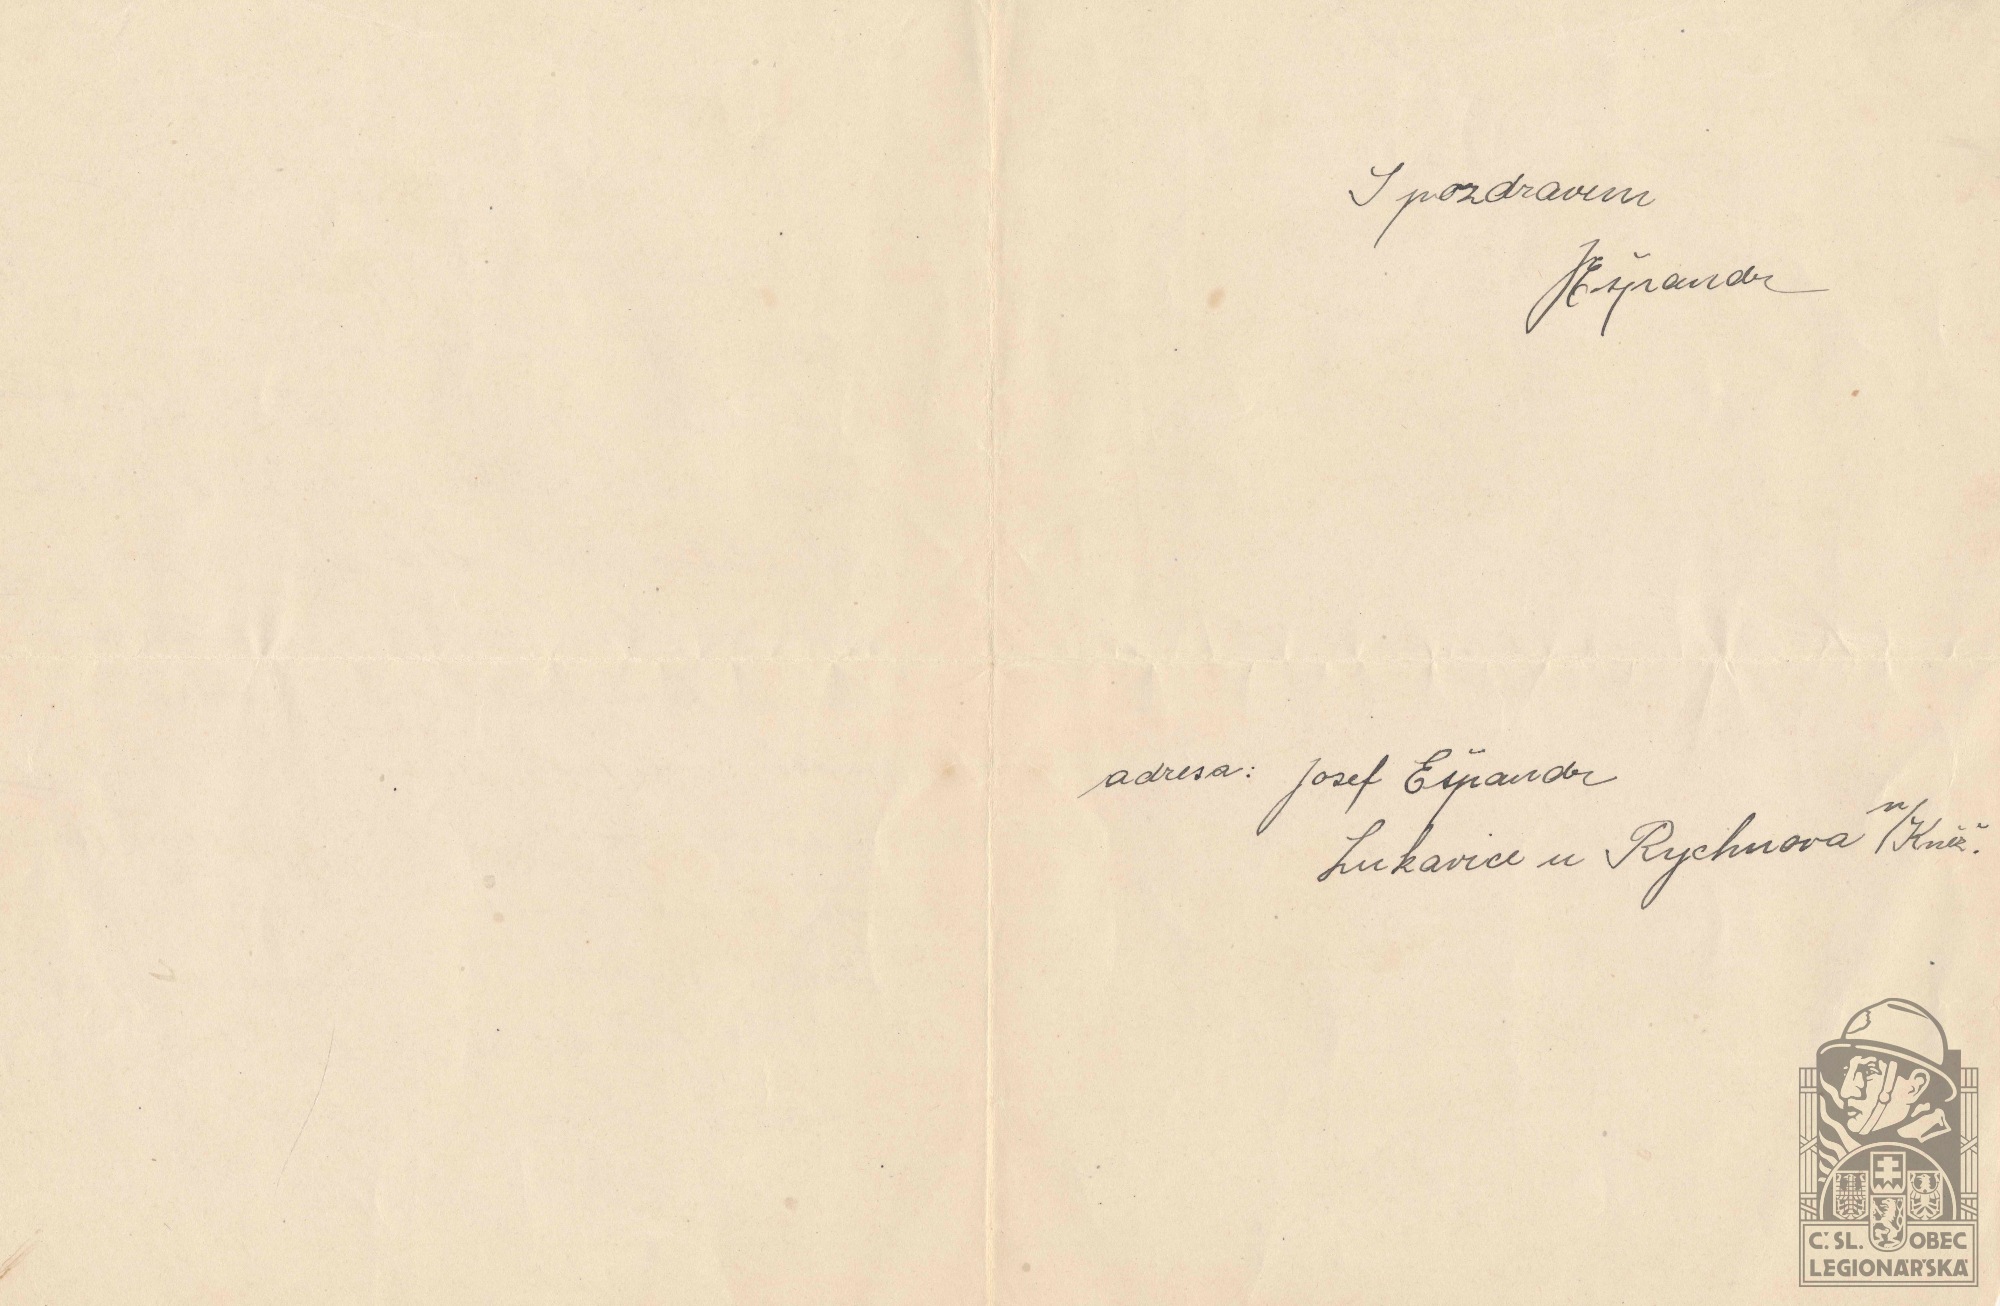 S pozdravem
JEšpandr
adresa: Josef Ešpandr
Lukavice u Rychnova n/Kněž.
Č. SL. OBEC
LEGIONÁŘSKÁ